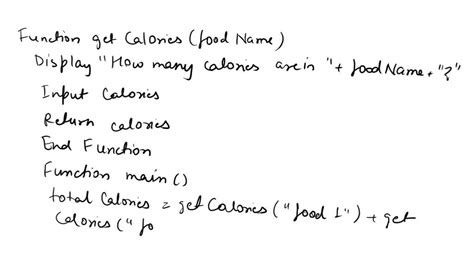 Function get Calories (food Name)
Display "How many calories are in "+ food Name + "?"
Input Calories
Return calories
End Function
Function main ()
total Calories = get Calories ("food 1") + get
Calories (" fo